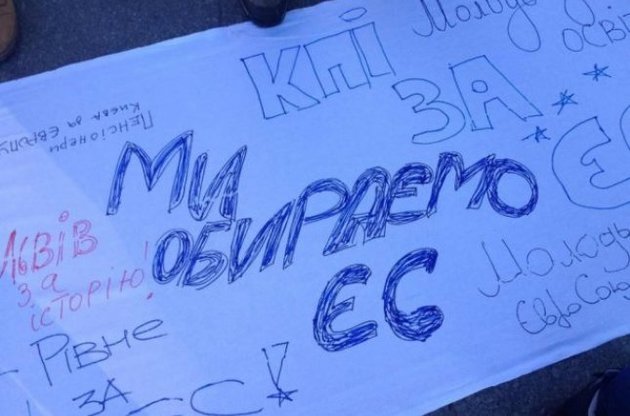 КПІ
ЗА
ЄС
Молодь
освіт
Пенсіонери
Києва за ЄВРОПУ
МИ
ОБИРАЄМО
ЄС
ЛЬВІВ
за
історію!
Рівне
ЗА
ЄС
Молодь